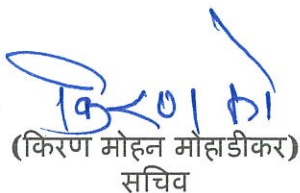 किरण मो
(किरण मोहन मोहाडीकर)
सचिव